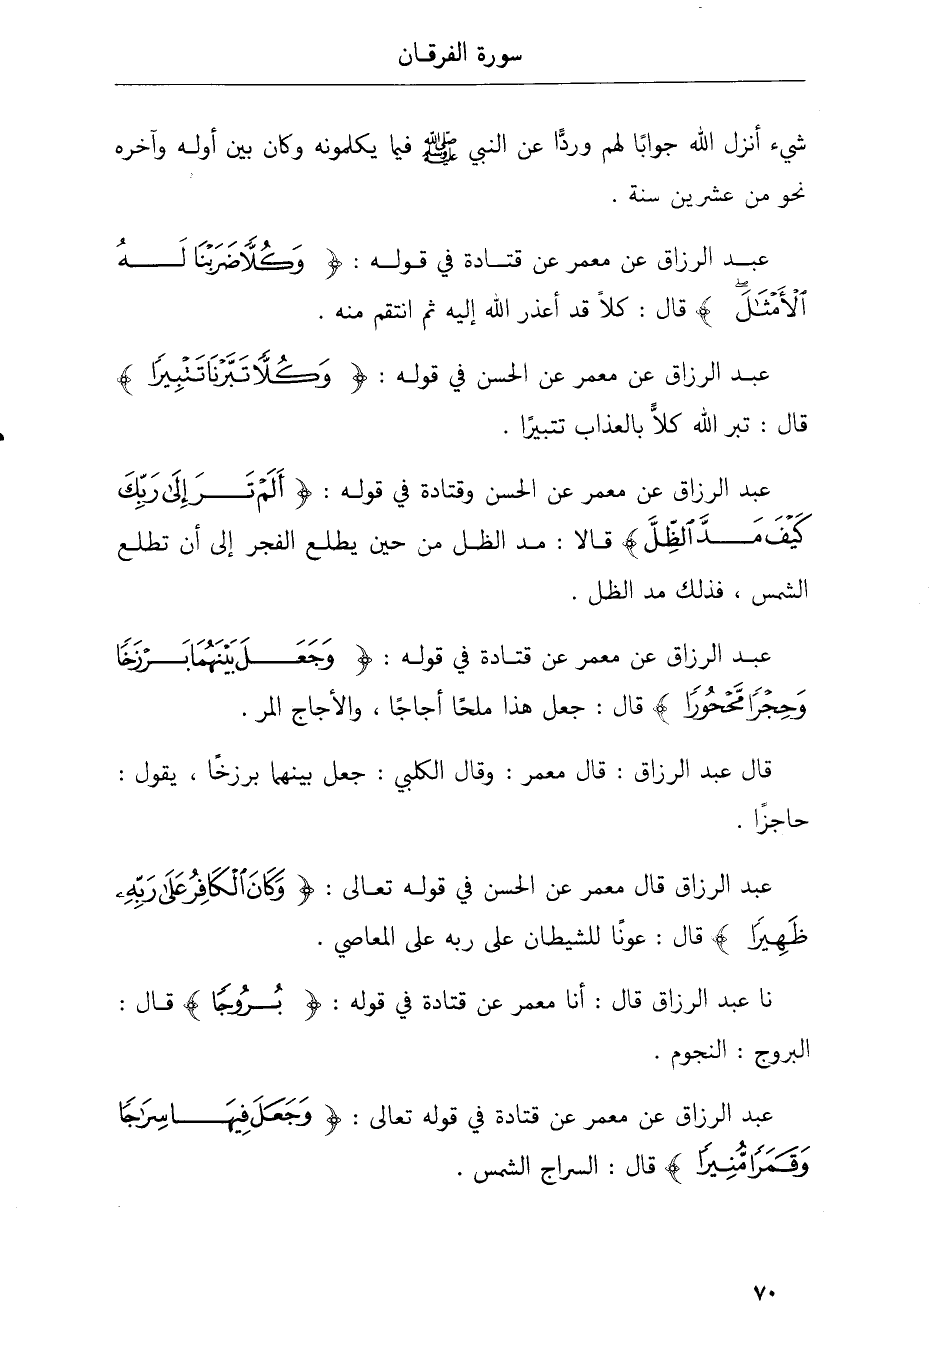 سورة الفرقان
شيء أنزل الله جوابًا لهم وردًّا عن النبي ﷺ فيما يكلمونه وكان بين أوله وآخره
نحو من عشرين سنة .
عبد الرزاق عن معمر عن قتادة في قوله : ﴿ وَكُلًّا ضَرَبْنَا لَهُ
ٱلْأَمْثَٰلَۖ ﴾ قال : كلاً قد أعذر الله إليه ثم انتقم منه .
عبد الرزاق عن معمر عن الحسن في قوله : ﴿ وَكُلًّا تَبَّرْنَا تَتْبِيرًا ﴾
قال : تبر الله كلاًّ بالعذاب تتبيرًا .
عبد الرزاق عن معمر عن الحسن وقتادة في قوله : ﴿ أَلَمْ تَرَ إِلَىٰ رَبِّكَ
كَيْفَ مَدَّ ٱلظِّلَّ ﴾ قالا : مد الظل من حين يطلع الفجر إلى أن تطلع
الشمس ، فذلك مد الظل .
عبد الرزاق عن معمر عن قتادة في قوله : ﴿ وَجَعَلَ بَيْنَهُمَا بَرْزَخًا
وَحِجْرًا مَّحْجُورًا ﴾ قال : جعل هذا ملحًا أجاجًا ، والأجاج المر .
قال عبد الرزاق : قال معمر : وقال الكلبي : جعل بينهما برزخًا ، يقول :
حاجزًا .
عبد الرزاق قال معمر عن الحسن في قوله تعالى : ﴿ وَكَانَ ٱلْكَافِرُ عَلَىٰ رَبِّهِۦ
ظَهِيرًا ﴾ قال : عونًا للشيطان على ربه على المعاصي .
نا عبد الرزاق قال : أنا معمر عن قتادة في قوله : ﴿ بُرُوجًا ﴾ قال :
البروج : النجوم .
عبد الرزاق عن معمر عن قتادة في قوله تعالى : ﴿ وَجَعَلَ فِيهَا سِرَٰجًا
وَقَمَرًا مُّنِيرًا ﴾ قال : السراج الشمس .
٧٠